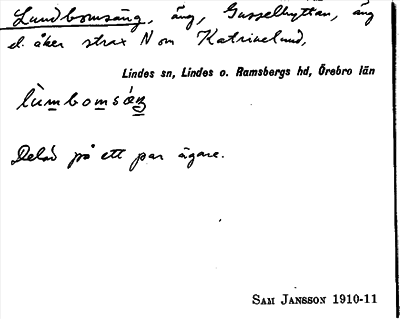 Lundbomsäng, äng, Gusselhyttan, äng
el. åker strax N om Katrinelund,
Lindes sn, Lindes o. Ramsbergs hd, Örebro län
Delad på ett par ägare.
SAM JANSSON 1910-11